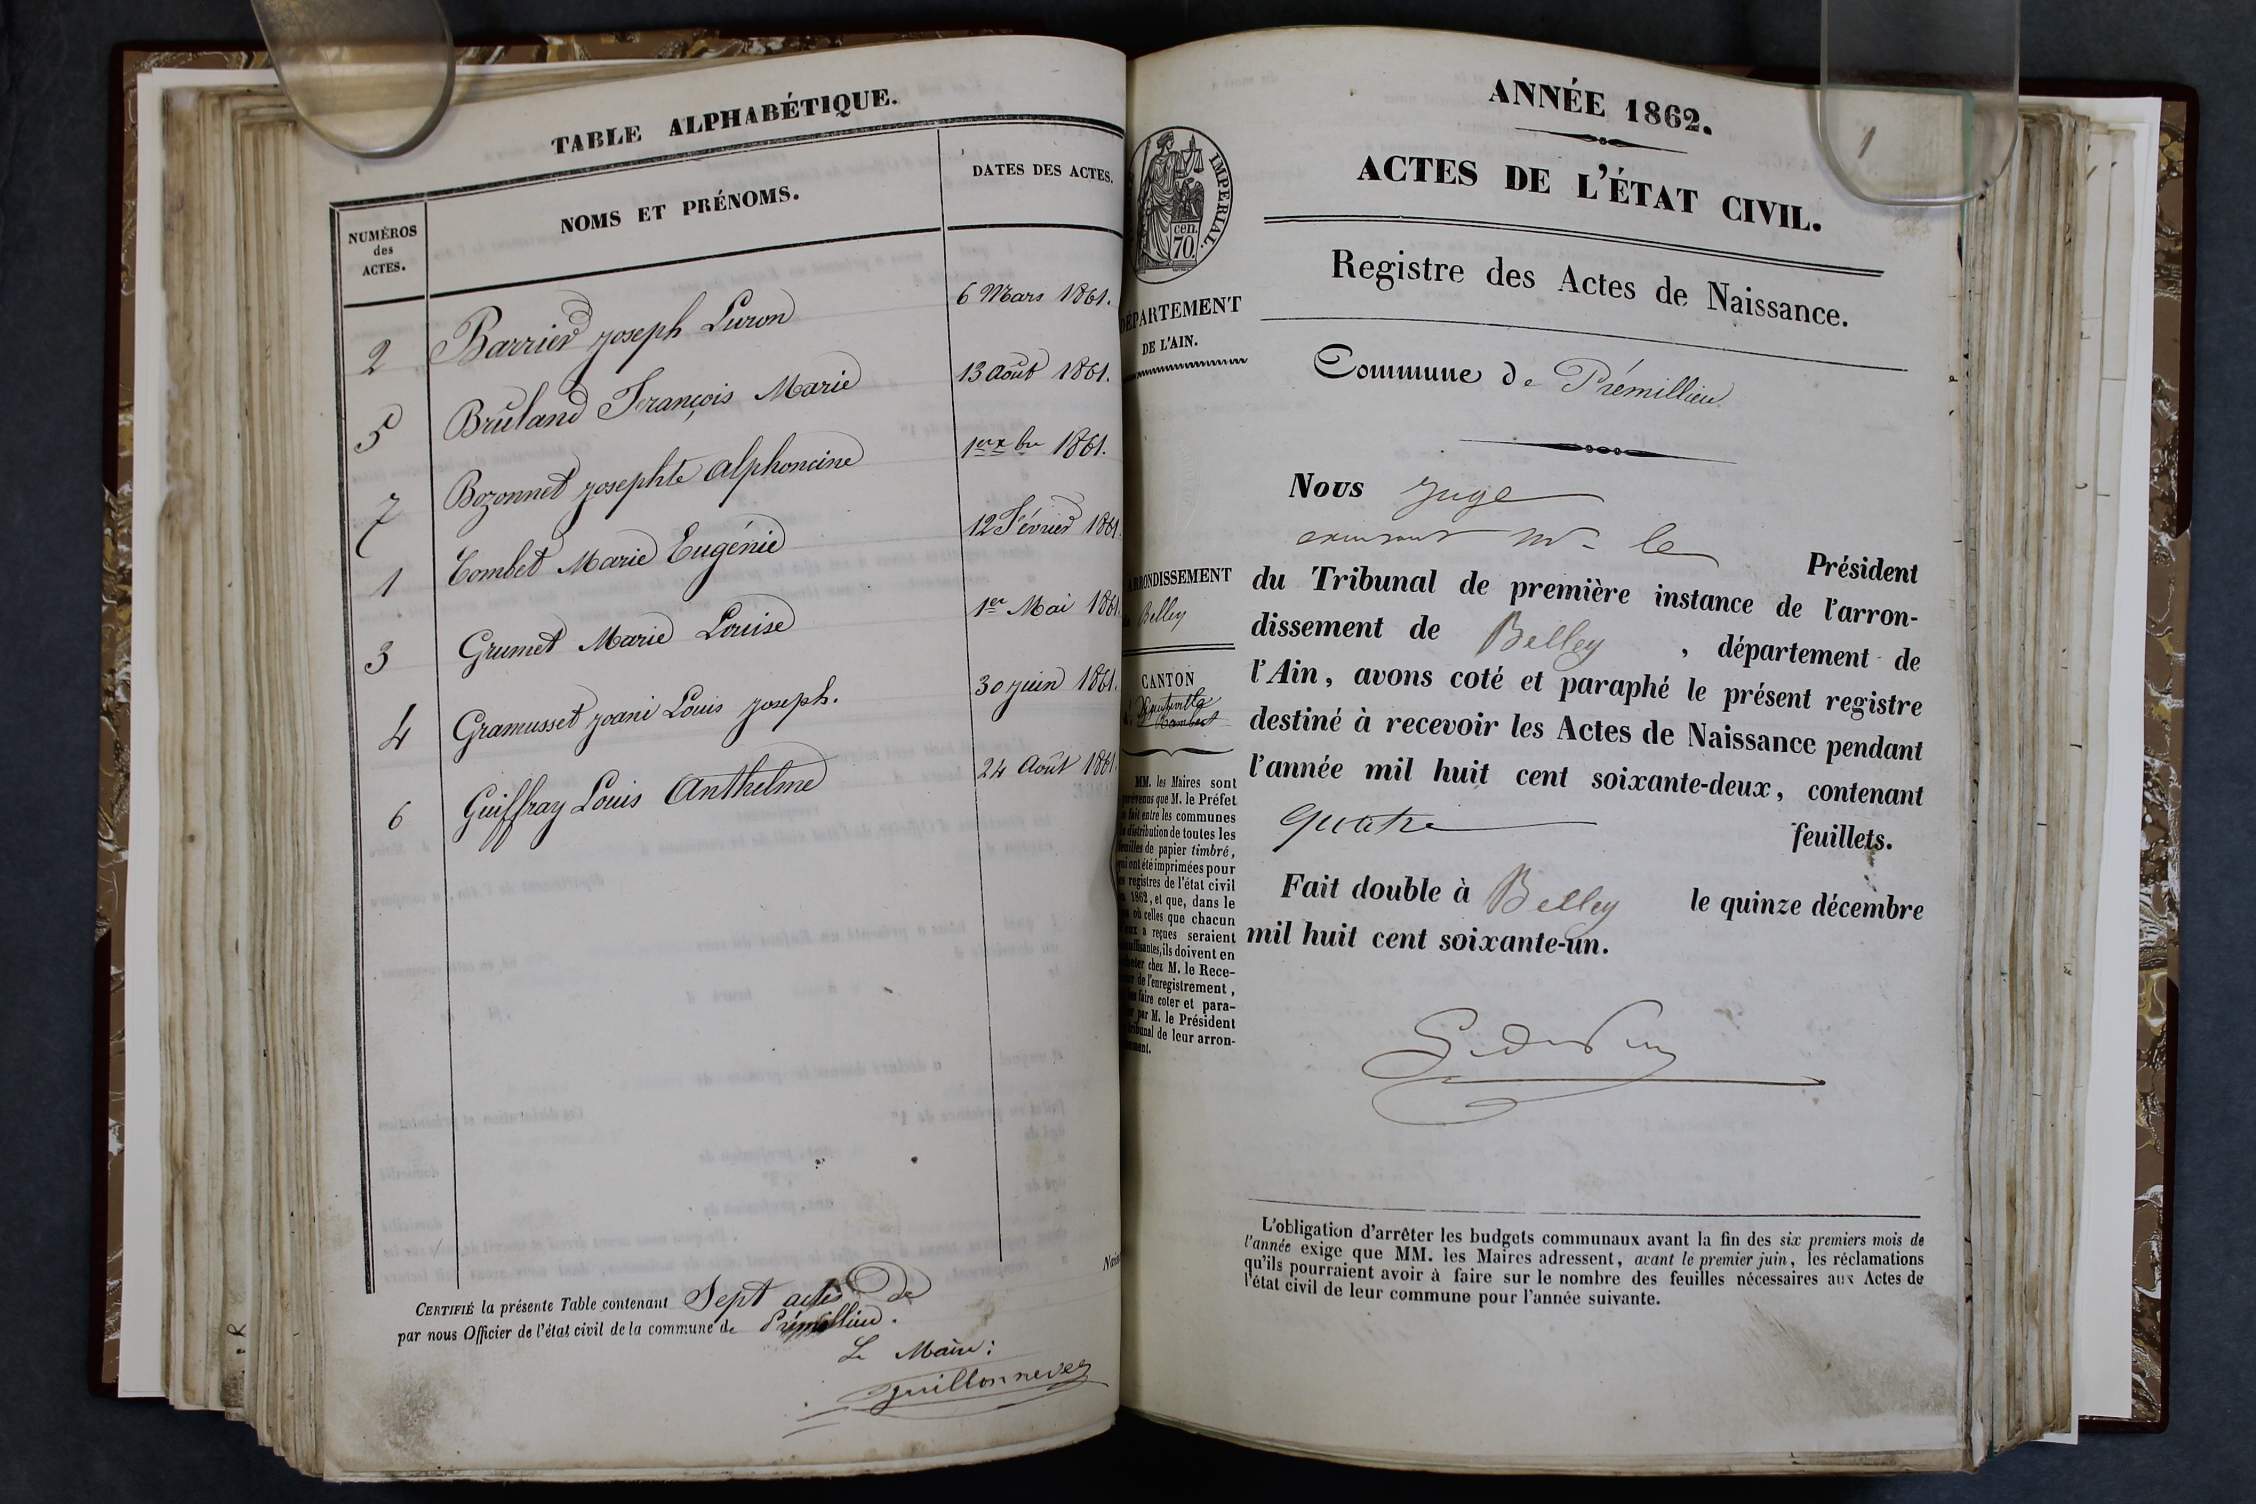 TABLE ALPHABÉTIQUE.
NUMÉROS
des
ACTES.
NOMS ET PRÉNOMS.
DATES DES ACTES.
2 Barrier joseph Luron 6 Mars 1861.
5 Bruland François Marie 13 Août 1861.
7 Bozonnet josephte alphoncine 1er Xbre 1861.
1 Combet Marie Eugénie 12 Février 1861.
3 Grumet Marie Louise 1er Mai 1861.
4 Gramusset joani Louis joseph. 30 juin 1861.
6 Guiffray Louis Anthelme 24 Août 1861.
CERTIFIÉ la présente Table contenant Sept actes de
par nous Officier de l'état civil de la commune de Prémillieu.
Le Maire:
Guillonneve
ANNÉE 1862.
1
ACTES DE L'ÉTAT CIVIL.
IMPERIAL.
cen.
70.
Registre des Actes de Naissance.
DÉPARTEMENT
DE L'AIN.
Commune de Prémillieu
Nous juge
Mr le Président
du Tribunal de première instance de l'arron-
dissement de Belley, département de
l'Ain, avons coté et paraphé le présent registre
destiné à recevoir les Actes de Naissance pendant
l'année mil huit cent soixante-deux, contenant
quatre feuillets.
Fait double à Belley le quinze décembre
mil huit cent soixante-un.
ARRONDISSEMENT
Belley
CANTON
MM. les Maires sont
prévenus que M. le Préfet
a fait entre les communes
la distribution de toutes les
feuilles de papier timbré,
qui ont été imprimées pour
les registres de l'état civil
1862, et que, dans le
où celles que chacun
eux a reçues seraient
insuffisantes, ils doivent en
acheter chez M. le Rece-
de l'enregistrement,
faire coter et para-
par M. le Président
tribunal de leur arron-
L'obligation d'arrêter les budgets communaux avant la fin des six premiers mois de
l'année exige que MM. les Maires adressent, avant le premier juin, les réclamations
qu'ils pourraient avoir à faire sur le nombre des feuilles nécessaires aux Actes de
l'état civil de leur commune pour l'année suivante.